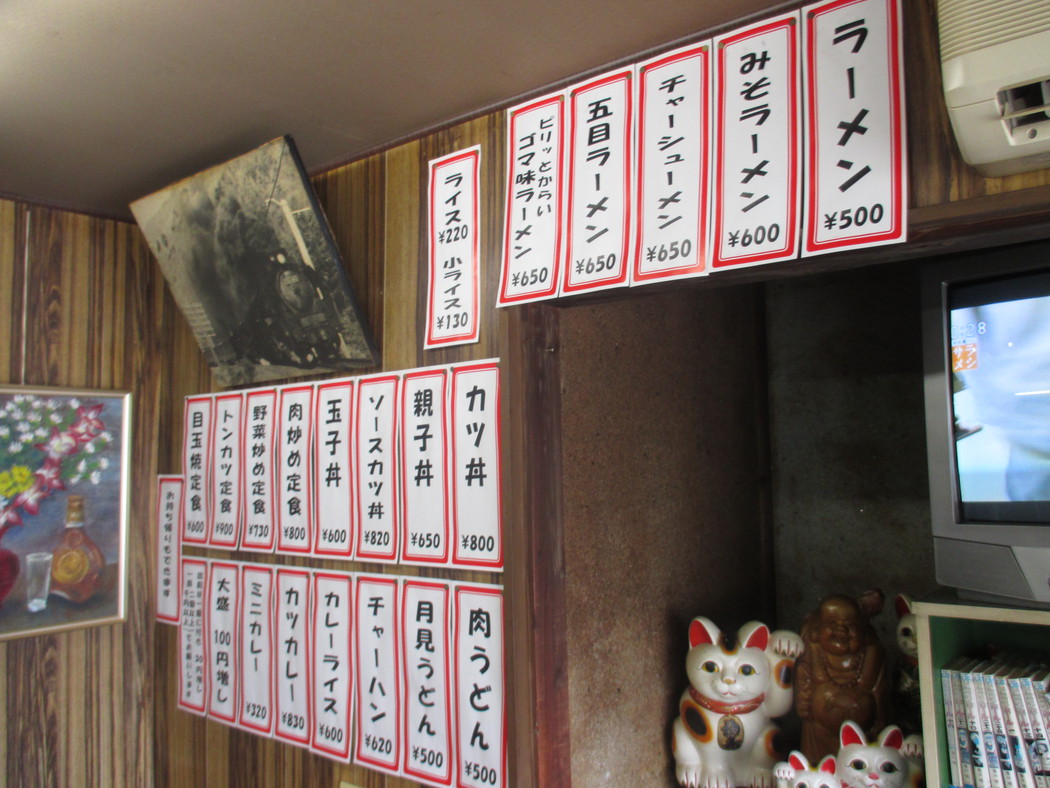 ラーメン
¥500
みそラーメン
¥600
チャーシューメン
¥650
五目ラーメン
¥650
ピリッとからい
ゴマ味ラーメン
¥650
ライス
¥220
小ライス
¥130
カツ丼
¥800
親子丼
¥650
ソースカツ丼
¥820
玉子丼
¥600
肉炒め定食
¥800
野菜炒め定食
¥730
トンカツ定食
¥900
目玉焼定食
¥600
肉うどん
¥500
月見うどん
¥500
チャーハン
¥620
カレーライス
¥600
カツカレー
¥830
ミニカレー
¥320
大盛 100円増し
お持ち帰りもできます
:28
ラーメン